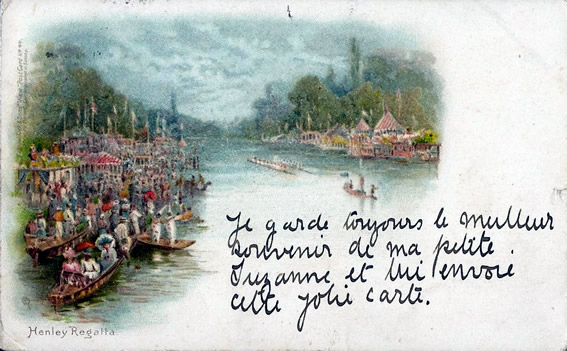 Je garde toujours le meilleur
souvenir de ma petite.
Suzanne et lui envoie
cette jolie carte.
Henley Regatta